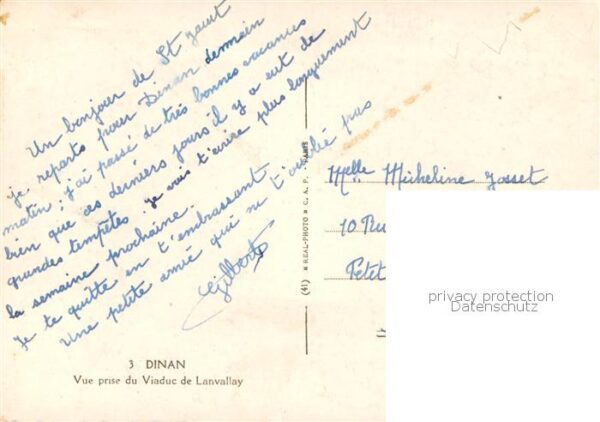 Un bonjour de St Jacut
je reparts pour Dinan demain
matin ; j'ai passé de très bonnes vacances
bien que ces derniers jours il y a eut de
grandes tempêtes. je vous t'ecrire plus longuement
la semaine prochaine.
Je te quitte en t'embrassant
Une petite amie qui ne t'oublie pas
Gilberte
3 DINAN
Vue prise du Viaduc de Lanvallay
(41) REAL-PHOTO C. A. P. PARIS
Melle Micheline Josset
10 Ru
Petit
privacy protection
Datenschutz